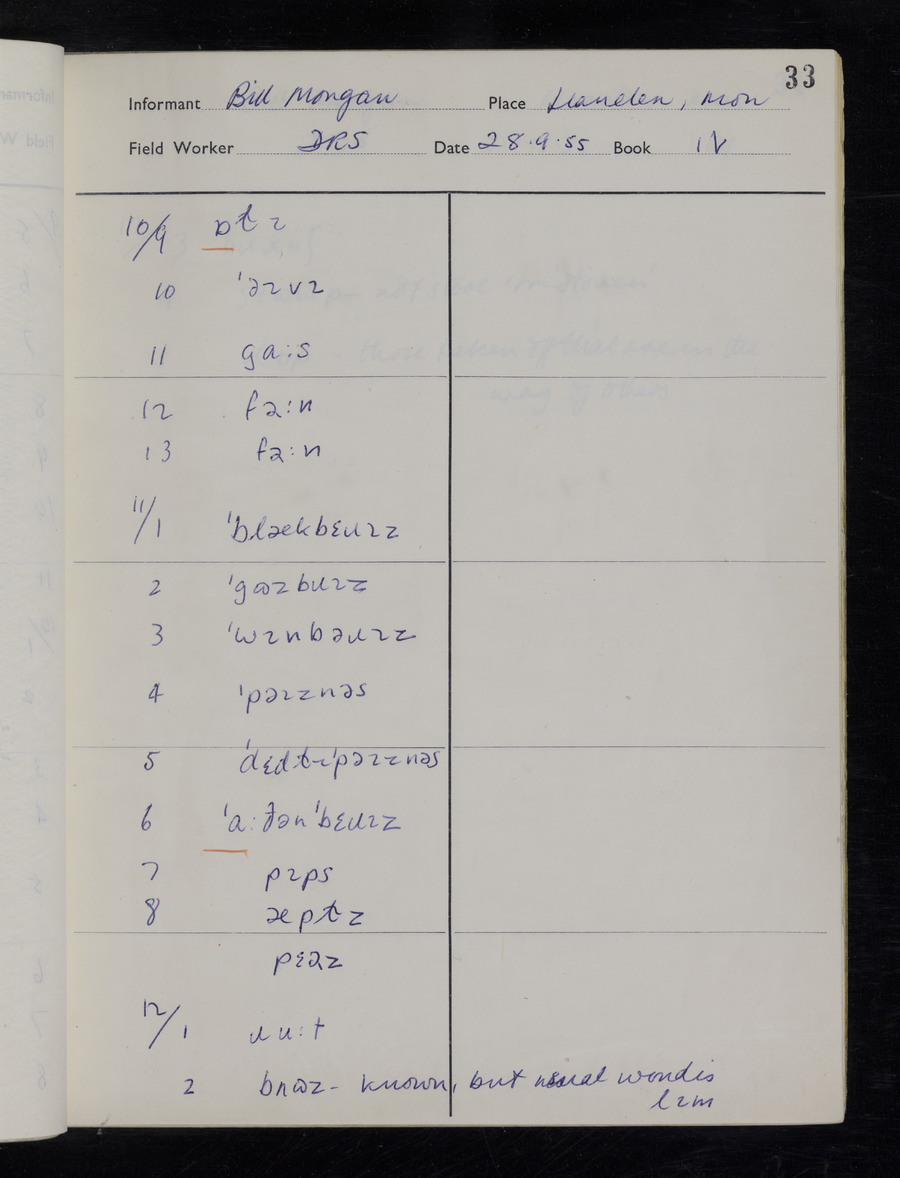 33
Informant Bill Morgan Place Llanellen, Mon
Field Worker DRS Date 28.9.55 Book IV
10/9 ɒtɪ
10 'əɪvɪ
11 ga:s
12 fə:n
13 fə:n
11/1 'blækbɛɹɪz
2 'gɷzbɹɪz
3 'wɪnbəɹɪz
4 'pəɪznəs
5 'dɛdtɪ'pəɪznəs
6 'a:ðən'bɛɹɪz
7 pɪps
8 æptz
pɛəz
12/1 ɹu:t
2 bɹɷz - known, but usual word is
lɪm